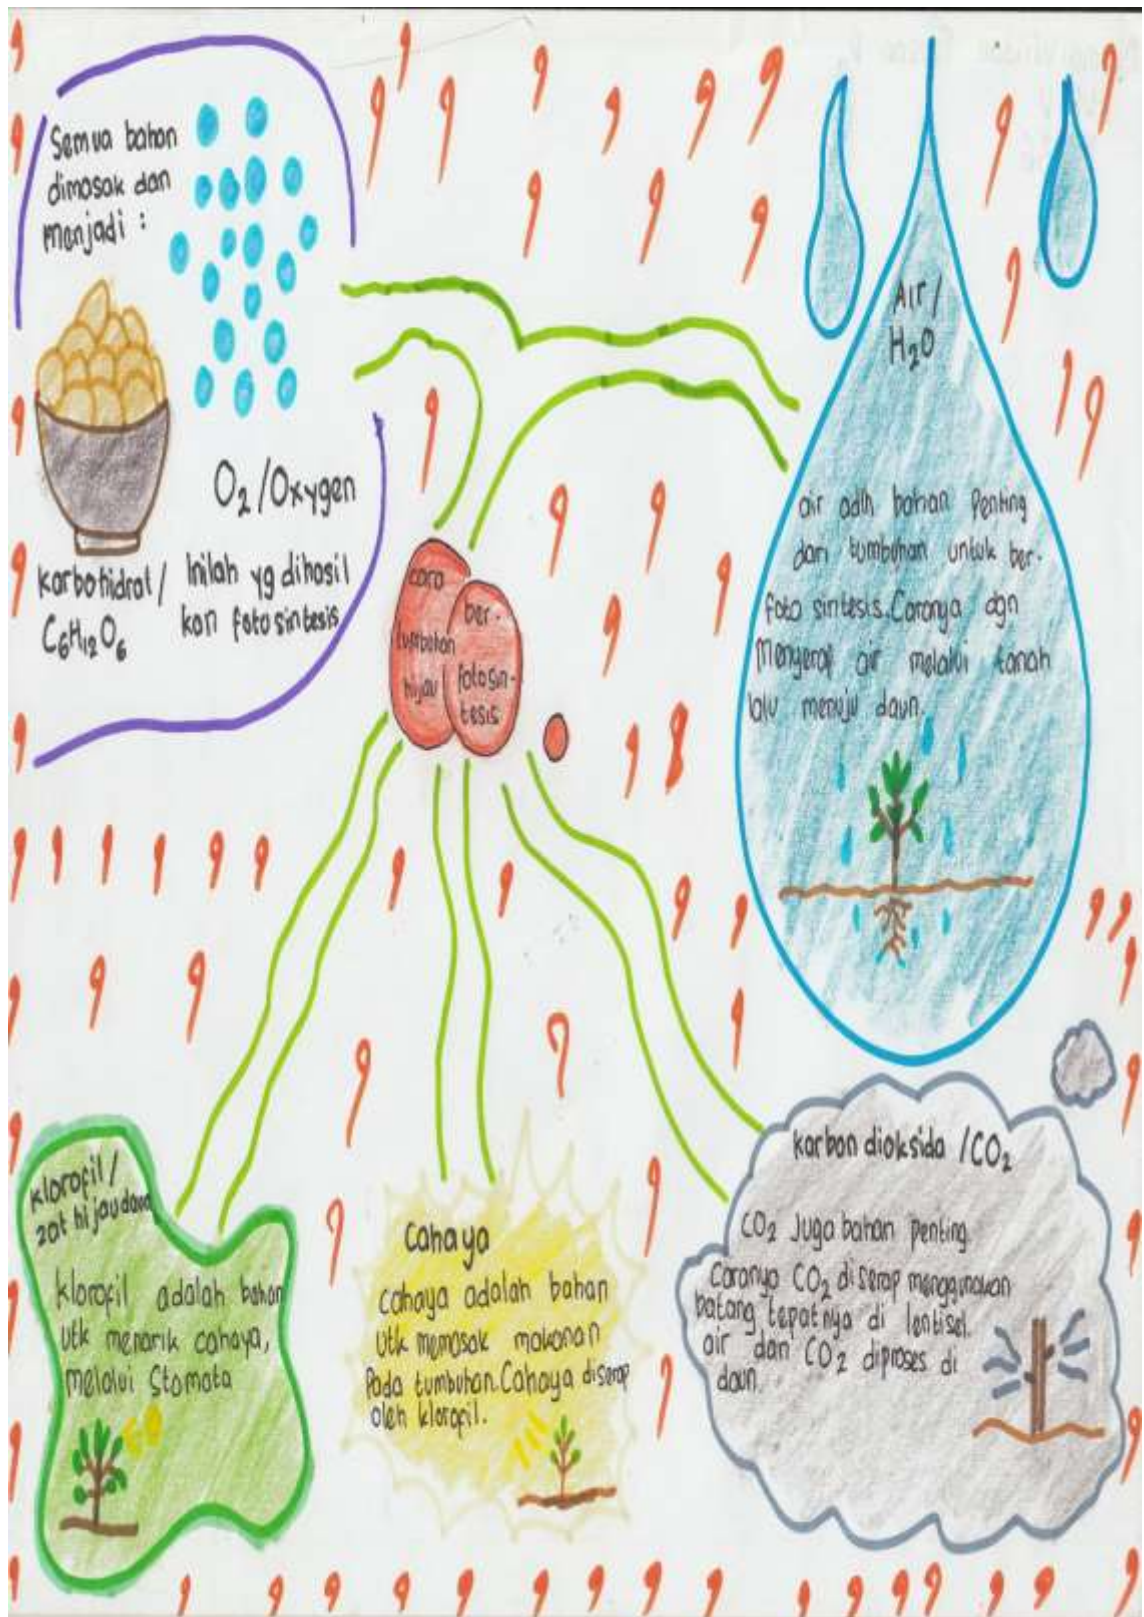 Semua bahan
dimasak dan
menjadi :
O2 /Oxygen
karbohidrat /
C6H12O6
Inilah yg dihasil
kan fotosintesis
Air /
H2O
air adlh bahan Penting
dari tumbuhan untuk ber-
foto sintesis.Caranya dgn
Menyerap air melalui tanah
lalu menuju daun.
cara
tumbuhan
hijau
ber-
fotosin-
tesis
klorofil /
zat hijau daun
klorofil adalah bahan
Utk menarik cahaya,
melalui Stomata
Cahaya
cahaya adalah bahan
Utk memasak makanan
Pada tumbuhan.Cahaya diserap
oleh klorofil.
karbon dioksida /CO2
CO2 Juga bahan penting.
Caranya CO2 diserap menggunakan
batang tepatnya di lentisel.
air dan CO2 diproses di
daun.